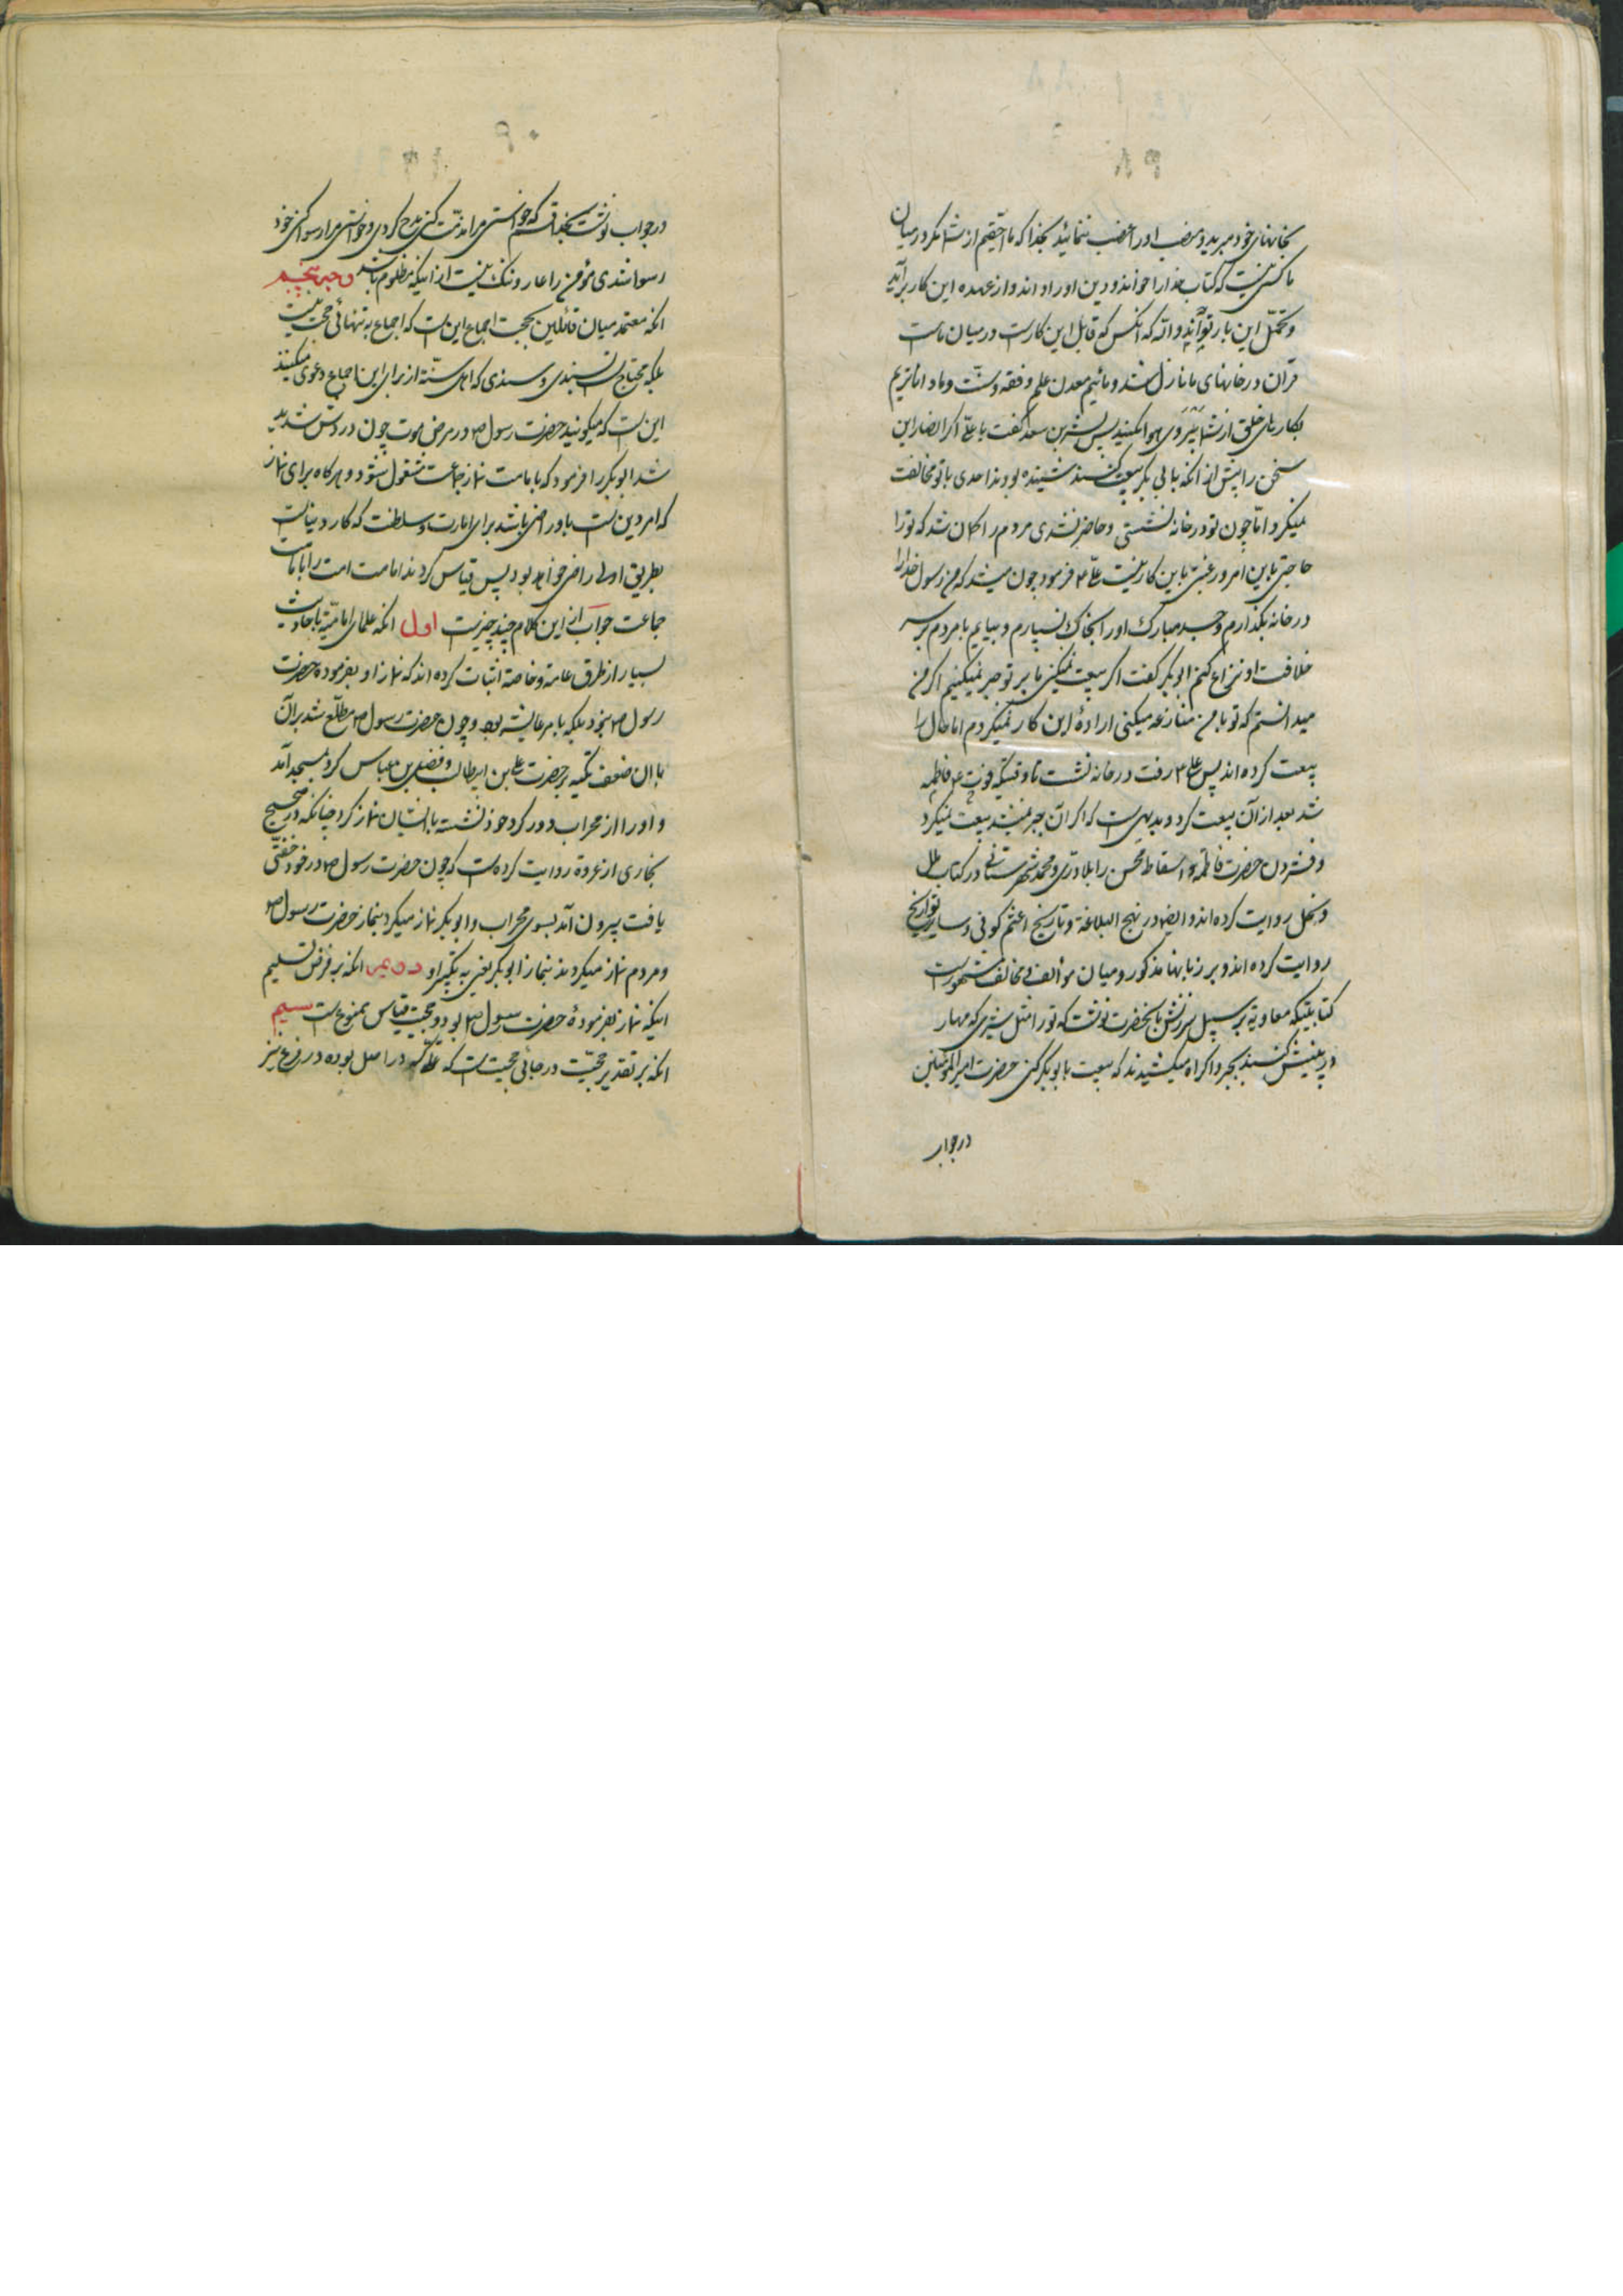 بخانهای خود مبرید و منصب او را غصب ننمائید بخدا که ما احقیم از شما مگر در میان
ما کسی نیست که کتاب خدا را خواند و دین او را داند و از عهده این کار برآید
و تحمّل این بار تواند واللّه که آنکس که قابل این کارست در میان ماست
قران در خانهای ما نازل شد و مائیم معدن علم و فقه و سنّت و ما داناتریم
بکارهای خلق از شما پَیْرَوی هوا مکنید پس بشیر بن سعد گفت یا علی اگر انصار این
سخن را پیش از آنکه با ابی بکر بیعت کنند شنیده بودند احدی با تو مخالفت
نمیکرد امّا چون تو در خانه نشستی و حاضر نشدی مردم را گمان شد که ترا
حاجتی باین امر و رغبتی باین کار نیست علی ع فرمود چون میشد که من رسول خدا را
در خانه بگذارم و جسد مبارک او را بخاک نسپارم و بیایم با مردم بر سر
خلافت او نزاع کنم ابو بکر گفت اگر بیعت نمیکنی ما بر تو جبر نمیکنیم اگر من
میدانستم که تو با من منازعه میکنی ارادهٔ این کار نمیکردم اما حال
بیعت کرده اند پس علی ع رفت در خانه نشست تا وقتیکه فوت فاطمه ع
شد بعد از آن بیعت کرد و بدیهی است که اگر آن جبر نمیشد بیعت نمیکرد
و فشردن حضرت فاطمه و اسقاط محسن را بلاذری و محمد شهرستانی در کتاب ملل
و نحل روایت کرده اند و ایضا در نهج البلاغة و تاریخ اعثم کوفی و سایر تواریخ
روایت کرده اند و بر زبانها مذکور و میان مؤالف و مخالف مشهورست
کتابتیکه معاویه بر سبیل سرزنش بآنحضرت نوشت که ترا مثل شتری که مهار
در بینیش کنند بجبر و اکراه میکشیدند که بیعت با ابو بکر کنی حضرت امیر المؤمنین
در جواب
در جواب نوشت بخدا قسم که خواستی مرا مذمّت کنی مدح کردی و خواستی مرا رسوا کنی خود
رسوا شدی مؤمن را عار و ننگ نیست از اینکه مظلوم باشد وجه پنجم
انکه معتمد میان قائلین بحجت اجماع این است که اجماع به تنهائی حجت نیست
بلکه محتاج است بسندی و سندی که اهل سنّة از برای این اجماع دعوی میکنند
این است که میگویند حضرت رسول ص در مرض موت چون دردش شدید
شد ابو بکر را فرمود که بامامت نماز جماعت مشغول شود و هرگاه برای نماز
که امر دین است باو راضی باشد برای امارت و سلطنت که کار دنیاست
بطریق اولی راضی خواهد بود پس قیاس کردند امامت امت را بامامت
جماعت جواب از این کلام چند چیزست اول انکه علمای امامیّه باحادیث
بسیار از طرق عامه و خاصه اثبات کرده اند که نماز او بفرموده حضرت
رسول ص نبود بلکه بامر عایشه بود و چون حضرت رسول ص مطلّع شد بر آن
با ان ضعف تکیه بر حضرت علی بن ابیطالب و فضل بن عباس کرد بمسجد آمد
و او را از محراب دور کرد خود نشسته با ایشان نماز کرد چنانکه در صحیح
بخاری از عروة روایت کرده است که چون حضرت رسول ص در خود خفّتی
یافت بیرون آمد بسوی محراب و ابو بکر نماز میکرد بنماز حضرت رسول ص
و مردم نماز میکردند بنماز ابو بکر یعنی به تکبیر او دویم انکه بر فرض تسلیم
اینکه نماز بفرمودهٔ حضرت رسول ص بود حجیت قیاس ممنوع است سیم
انکه بر تقدیر حجّیّت در جائی حجیت است که علّتی که در اصل بوده در فرع نیز